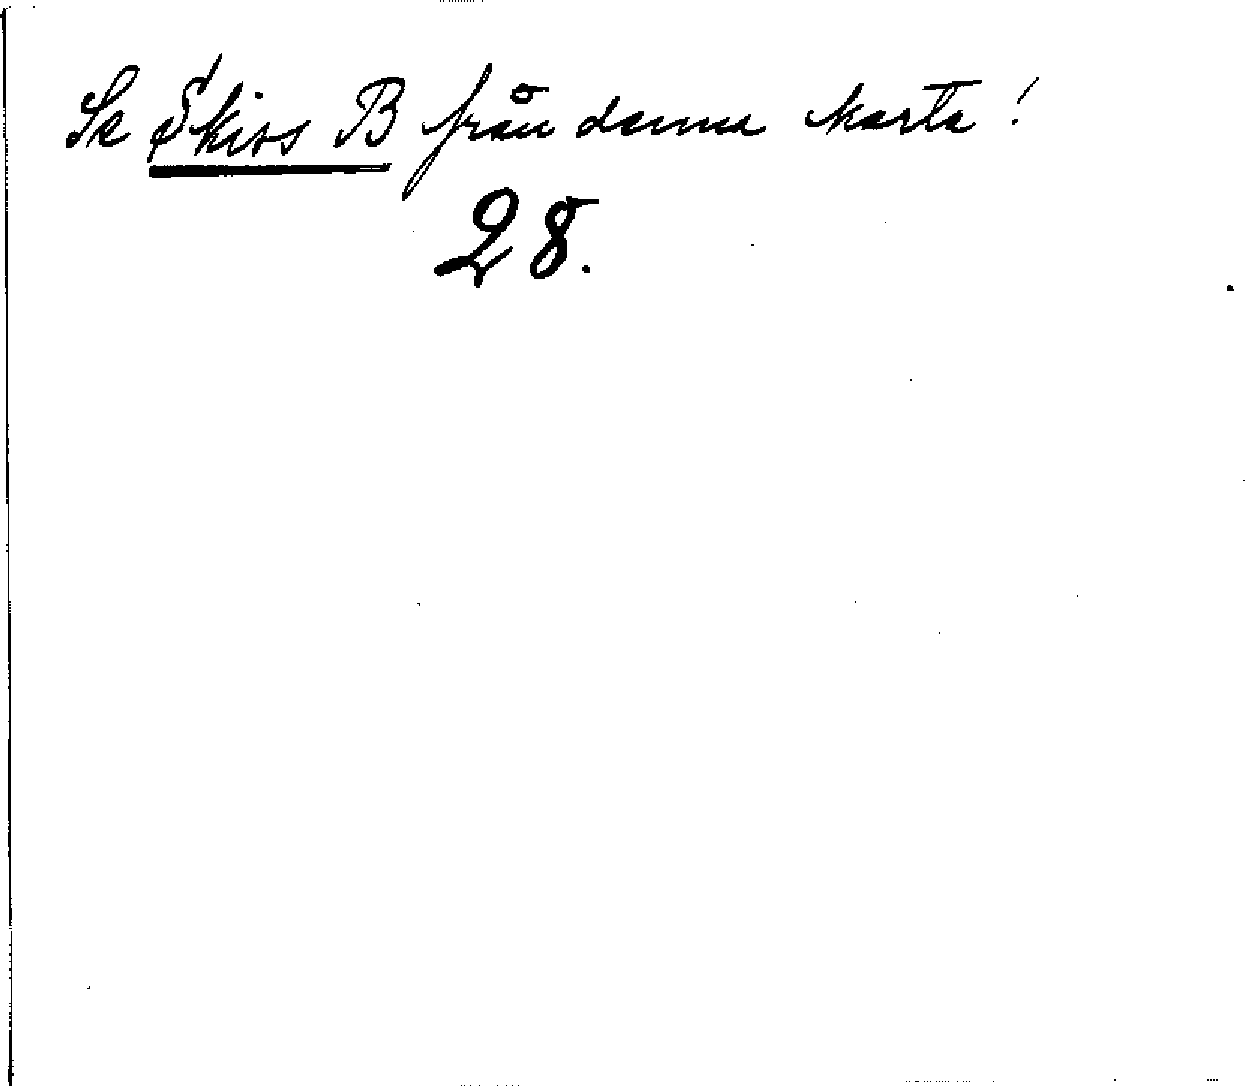 Se Skiss B från denna karta!
28.